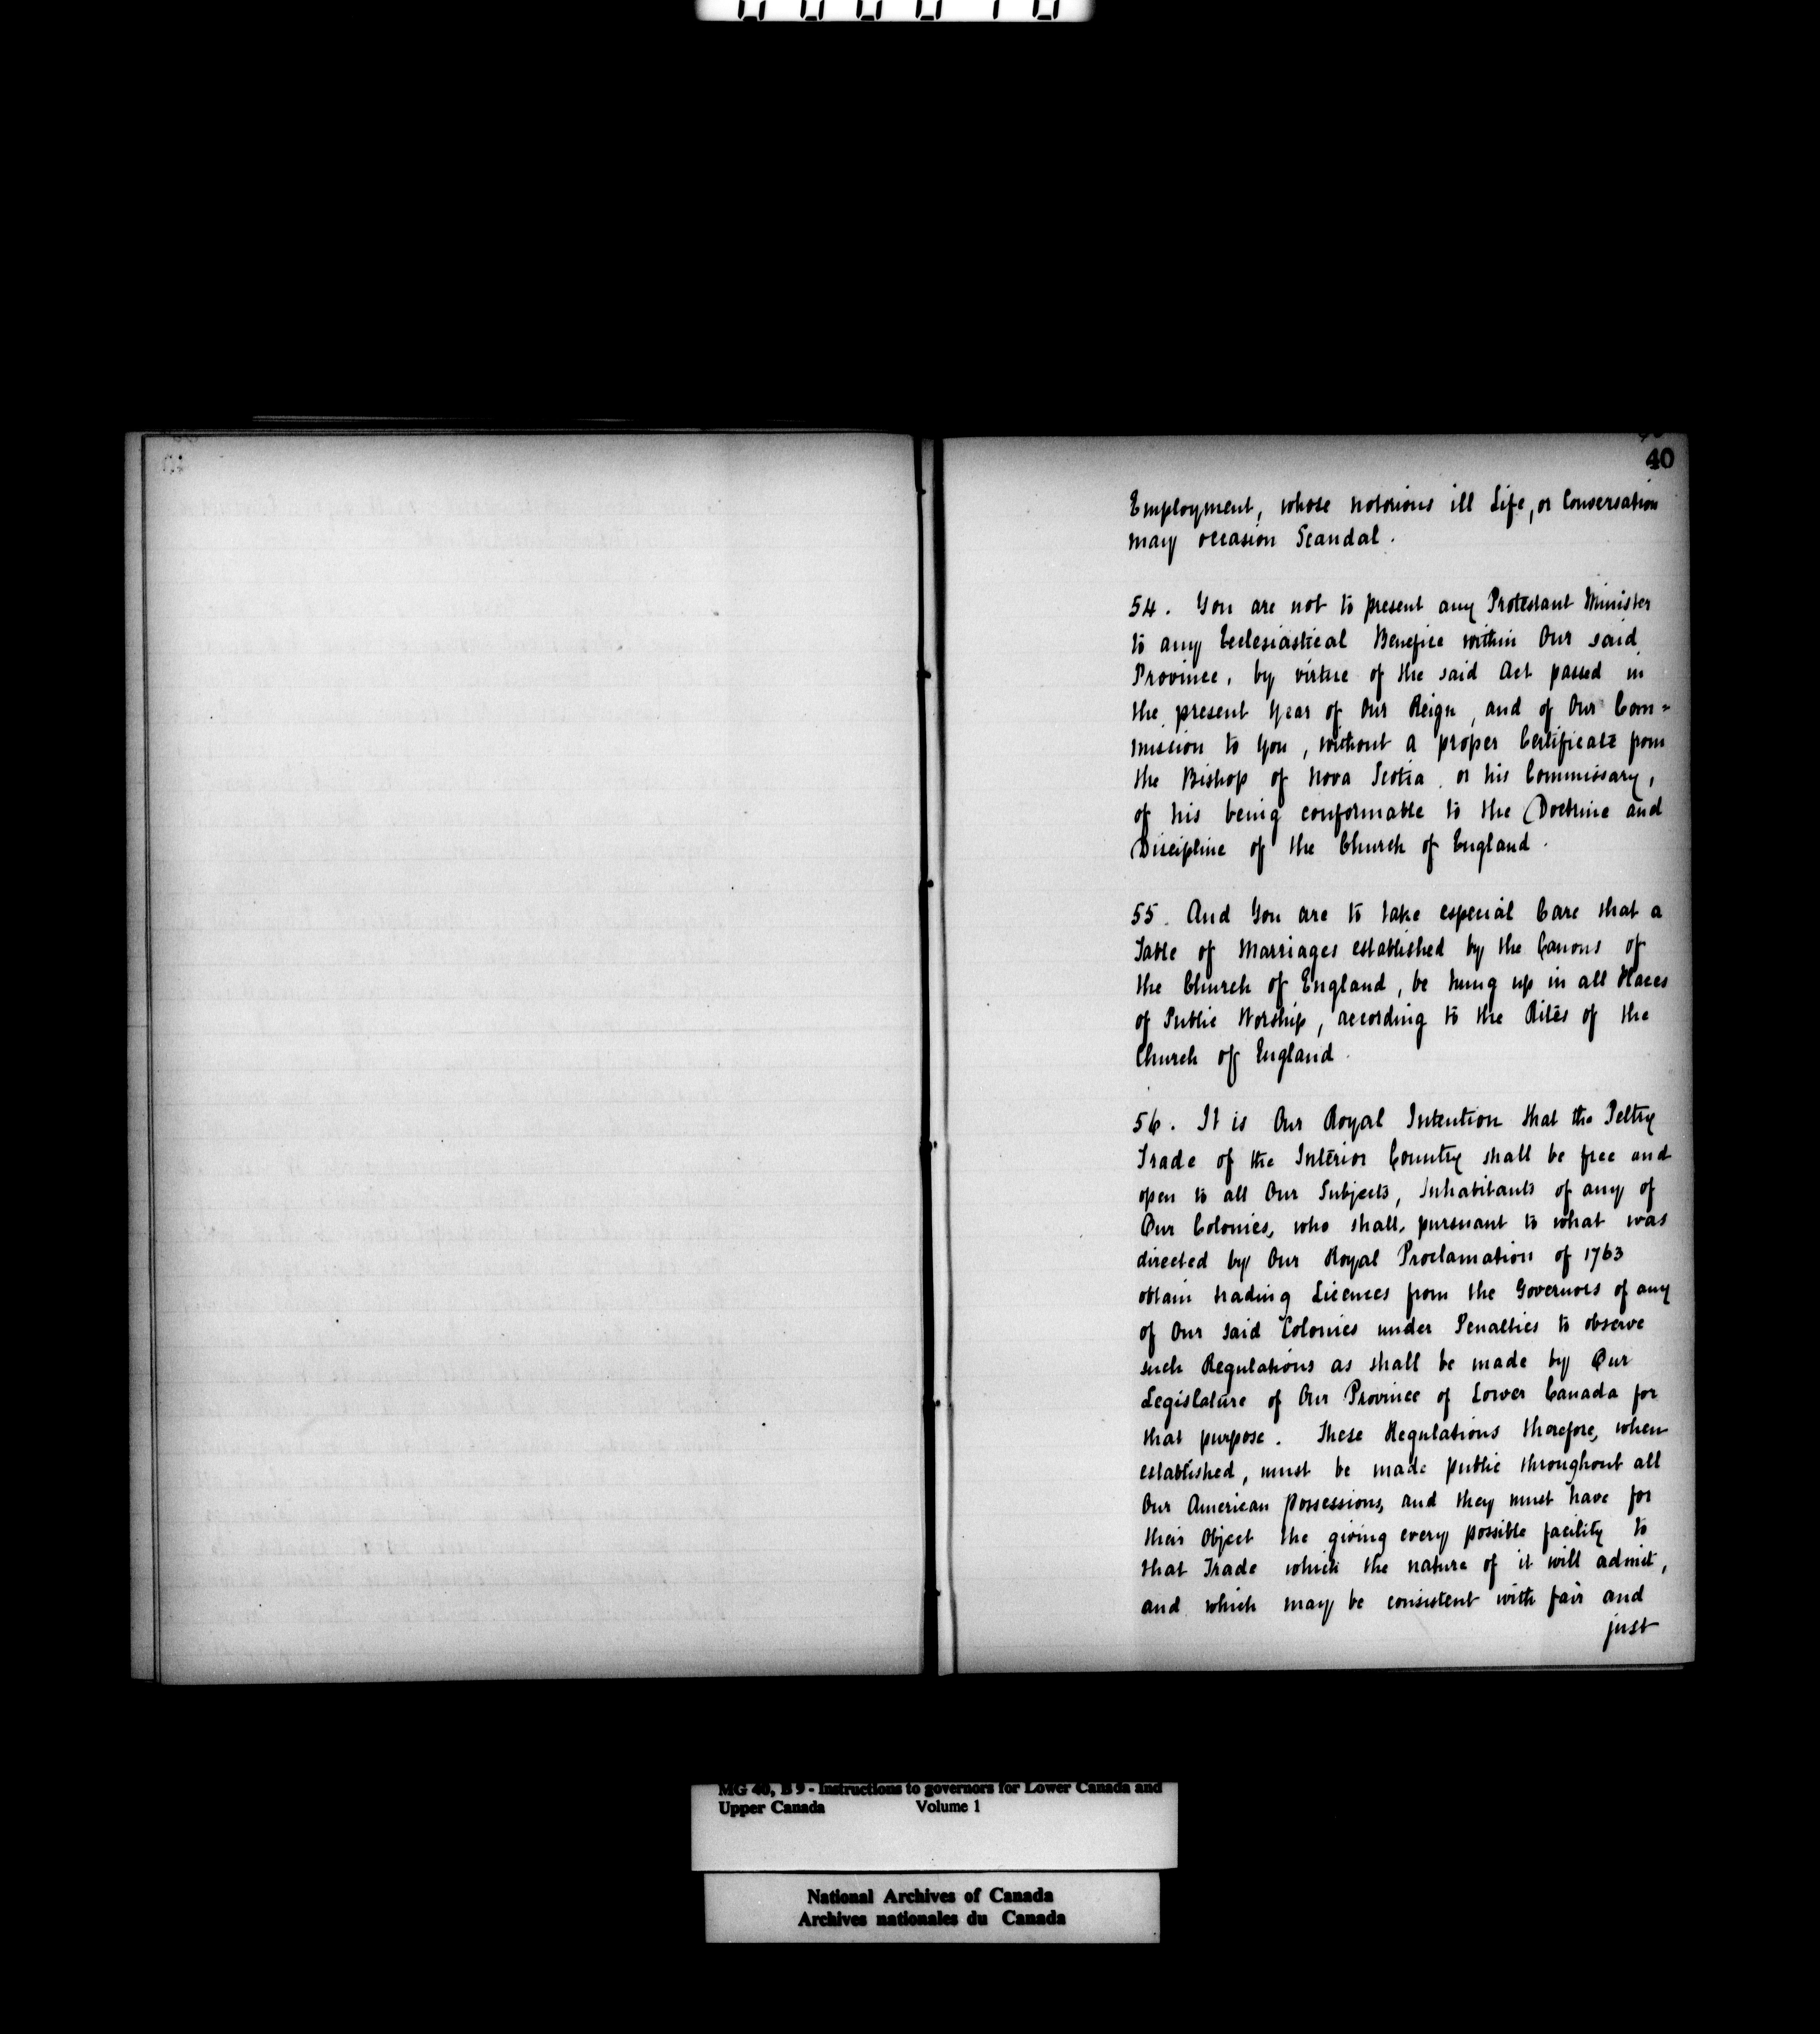 40
Employment, whose notorious ill Life, or Conversation
may occasion Scandal.
54. You are not to present any Protestant Minister
to any Ecclesiastical Benefice within Our said
Province, by virtue of the said Act passed in
the present Year of Our Reign, and of Our Com=
mission to You, without a proper Certificate from
the Bishop of Nova Scotia or his Commissary,
of his being conformable to the Doctrine and
Discipline of the Church of England.
55. And You are to take especial Care that a
Table of Marriages established by the Canons of
the Church of England, be hung up in all Places
of Public Worship, according to the Rites of the
Church of England.
56. It is Our Royal Intention that the Peltry
Trade of the Interior Country shall be free and
open to all Our Subjects, Inhabitants of any of
Our Colonies, who shall, pursuant to what was
directed by Our Royal Proclamation of 1763
obtain trading Licences from the Governors of any
of Our said Colonies under Penalties to observe
such Regulations as shall be made by Our
Legislature of Our Province of Lower Canada for
that purpose. These Regulations therefore, when
established, must be made public throughout all
Our American possessions, and they must have for
their Object the giving every possible facility to
that Trade which the nature of it will admit,
and which may be consistent with fair and
just
MG 40, B 9 - Instructions to governors for Lower Canada and
Upper Canada Volume 1
National Archives of Canada
Archives nationales du Canada